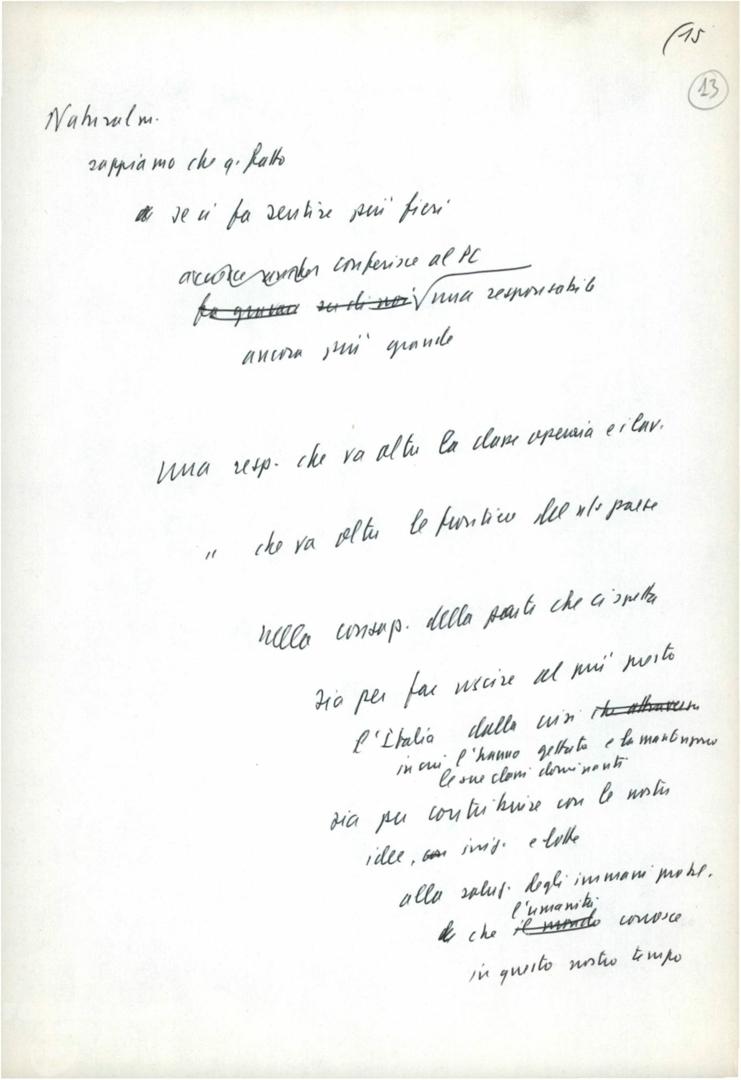 (15
13
Naturalm.
sappiamo che q. fatto
se ci fa sentire più fieri
conferisce al PC
fa gravare su di noi una responsabile
ancora più grande
una resp. che va oltre la classe operaia e i lav.
" che va oltre le frontiere del n/o paese
nella consap. della parte che ci spetta
sia per far uscire al più presto
l'Italia dalla crisi che attraversa
in cui l'hanno gettata e la mantengono
le sue classi dominanti
sia per contribuire con le nostre
idee, con iniz. e lotte
alla soluz. degli immani probl.
l'umanità
che il mondo conosce
in questo nostro tempo